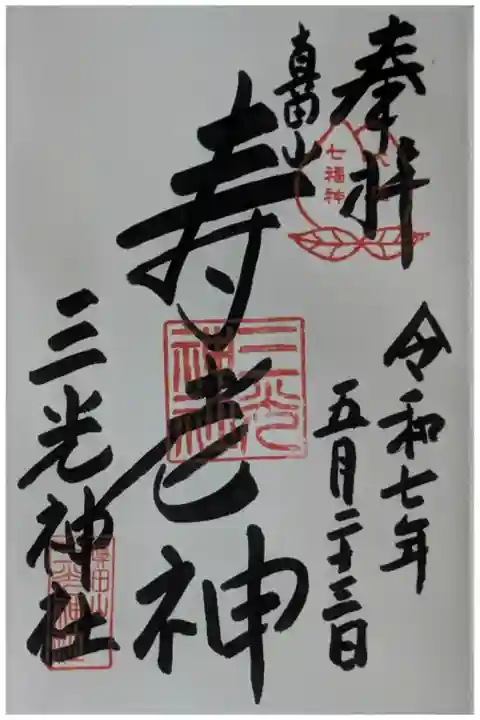 奉拝
七福神
令和七年
五月二十三日
真田山
寿老神
三光神社
三光神社
真田山
三光神社